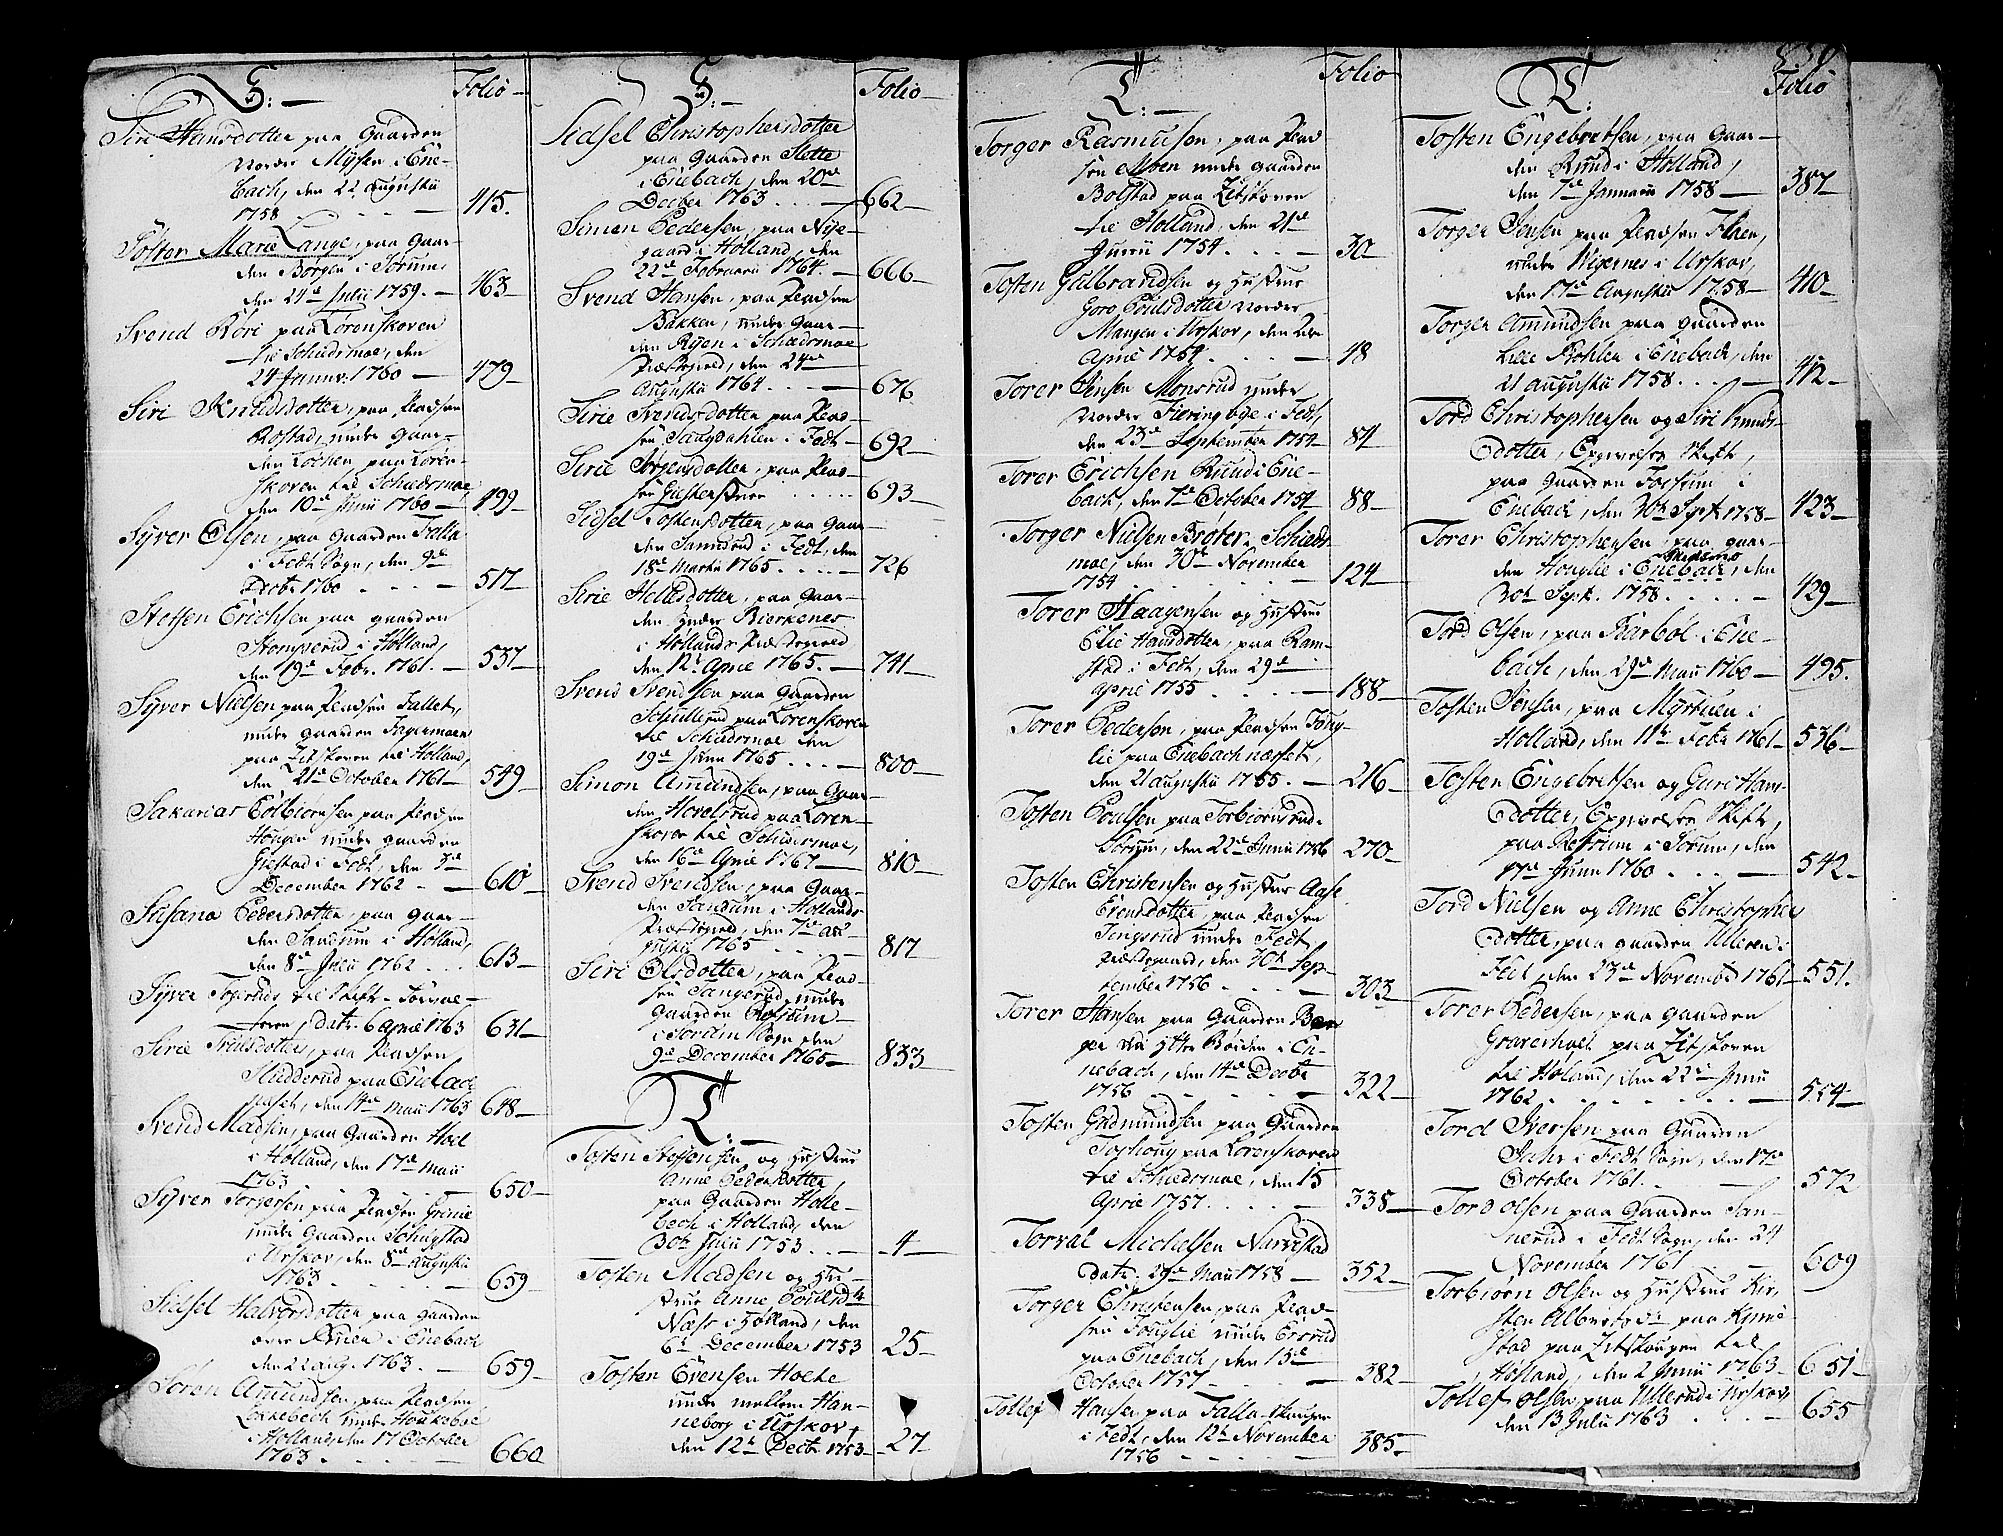 S: Folio
Siri Hansdotter paa Gaarden
Nordre Mysen i Ene-
bach, den 22 Augusti
1758 415.
Søster Marie Lange, paa Gaar-
den Borgen i Sørum,
den 24de Julii 1759. 463
Svend Köri paa Lørenskoven
til Schiedsmoe, den
24 Januv: 1760 479
Siri Knudsdotter, paa Pladsen
Rostad, under Gaar-
den Lochen paa Løren-
skoven til Schiedsmoe,
den 10de Junii 1760 499
Syver Olsen, paa Gaarden Falla
i Fedt Sogn, den 9de
Dcbr 1760 517
Steffen Erichsen paa gaarden
Stomperud i Holland,
den 19de Febr. 1761. 537
Syver Nielsen paa Pladsen Fallet,
under gaarden
paa Zitskoven til Holland,
den 21de October 1761 549
Sakarias Colbiørnsen paa Pladsen
Haugen under gaarden
Giestad i Fedt, den 3de
December 1762 610
Susana Pedersdotter, paa Gaar-
den Sandum i Holland,
den 8de Julii 1762 613
Syver til Skift-
dat: 6 April 1763 631
Sirie paa Pladsen
Studderud paa Enebach
næset, den 14de Maii 1763 648
Svend Madsen, paa Gaarden Hoel
i Holland, den 17de Maii
1763 650
Syver Torgersen paa Pladsen
under Gaarden
i Urskov, den 8de Augusti
1763 659
Sidsel Halversdotter paa gaarden
i Enebach
den 22 Aug. 1763. 659
Søren Amundsen, paa Pladsen
under
i Holland, den 17 October
1763 660
S: Folio
Sidsel Christophersdotter
paa Gaarden Slette
i Enebach, den 20de
Decbr 1763 662
Simon Pedersen, paa Nye-
gaard i Holland, den
22de Februarii 1764. 666
Svend Hansen, paa Pladsen
Bakken, under Gaar-
den Ryen i Schiedsmoe
Præstegield, den 24de
Augusti 1764. 676
Sirie Svendsdotter paa Plad-
sen Saugdahlen i Fedt 692
Sirie Jørgensdotter, paa Plad-
sen 693
Sidsel Tostensdotter, paa Gaar-
den Sannerud i Fedt, den
18de Martii 1765 726
Sirie Hellesdotter, paa Gaar-
den Bierkenes
i Hollands Præstegield
den 12te April 1765. 741
Svend Svendsen paa Gaarden
Schullerud paa Lørenskoven
til Schiedsmoe den
19de Junii 1765 800
Simon Amundsen, paa Gaar-
den Hovelsrud paa Løren-
skoven til Schiedsmoe,
den 16de April 1767 810
Svend Svendsen, paa Gaar-
den Sandum i Hollands
Præstegield, den 7de Au-
gusti 1765 817
Siri Olsdotter, paa Plad-
sen Tangerud, under
Gaarden Refsum
i Sørum Sogn den
9de December 1765 833
T:
Tosten Steffensen, og Hustrue
Anne Pedersdotter,
paa Gaarden Holle-
bech i Holland, den
30te Julii 1753 4
Tosten Madsen og Hu-
strue Anne
Næss i Holland, den
6te December 1753 25
Tosten Evensen Holte
under mellem Han-
neborg i Urskov,
den 12te Decbr 1753 27
T: Folio
Torger Rasmusen, paa Plad-
sen Moen under gaarden
Bolstad paa Zitskoven
til Holland, den 21de
Junii 1754 30
Tosten Gulbrandsen og Hustrue
Goro Poulsdotter Nordre
Mangen i Urskov, den
April 1754 48
Torer Jensen Monsrud under
Nordre Fieringbye i Fedt,
den 23de September 1754 84
Torer Erichsen Rund i Ene-
bach, den 7de October 1754 88
Torger Nielsen Broter i Schieds-
moe, den 30te November
1754 124
Torer Haagensen og Hustrue
Elie Hansdotter, paa Ram-
stad i Fedt, den 29de
April 1755 188
Torer Pedersen, paa Pladsen Foug-
lie paa Enebachnæsset,
den 21 Augusti 1755 216
Tosten Poulsen paa Torbiørnsrud
Sørum, den 22de Junii 1756 270
Tosten Christensen og Hustrue Aase
Evensdotter, paa Pladsen
Tengsrud under Fedt
Præstegaard, den 30te Sep-
tember 1756 303
Torer Hansen paa Gaarden Ber-
ger ved Ytre Børden i En-
nebach, den 14de Decbr
1756 322
Tosten Gudmundsen paa Gaarden
paa Lørenskoven
til Schiedsmoe, den 15
April 1757. 338
Torval Michelsen Narvestad
Dat: 29de Maii 1758 352
Torger Christensen, paa Plad-
sen Fouglie under Ersrud
paa Enebach, den 13de
October 1757 382
Tollef Hansen paa Falla
i Fedt, den 12te November
1756 385
T: 839
Folio
Tosten Engebretsen, paa Gaar-
den Rund i Holland,
den 7de Januarii 1758 387
Torger Jensen paa Pladsen Floen,
under Nigernes i Urskov,
den 17de Augusti 1758 410
Torger Amundsen paa Gaarden
Lille Bøhler i Enebach, den
21 Augusti 1758. 412
Tord Christophersen og Siri Knuds-
dotter, Opgivelses Skift,
paa Gaarden Fossum i
Enebach, den 30te Sept. 1758 423
Torer Christophersen, paa Gaar-
den Fouglie i Enebach, den
30te Sept. 1758 429
Tord Olsen, paa Barbøl i Ene-
bach, den 29de Maii 1760 495.
Tosten Jensen, paa Myrtuen i
Holland, den 11te Febr 1761 536
Tosten Engebretsen og Guri Hans-
dotter, Opgivelses Skift,
paa Refsum i Sørum, den
17de Junii 1760 542
Tord Nielsen og Anne Christophers
dotter, paa gaarden Ulleren i
Fedt, den 23de Novembr 1761 551.
Torer Pedersen, paa Gaarden
Graverholt paa Zitskoven
til Holand, den 22de Junii
1762. 554
Tord Iversen paa Gaarden
Sahr i Fedt Sogn, den 17de
October 1761. 572
Tord Olsen paa Gaarden San-
nerud i Fedt Sogn, den 24
November 1761 609
Torbiørn Olsen og Hustrue Kir-
sten paa Kinne
stad paa Zitskougen til
Holland, den 2 Junii 1763 651
Tollef Olsøn paa Ullerud i Urskov,
den 13 Julii 1763 655